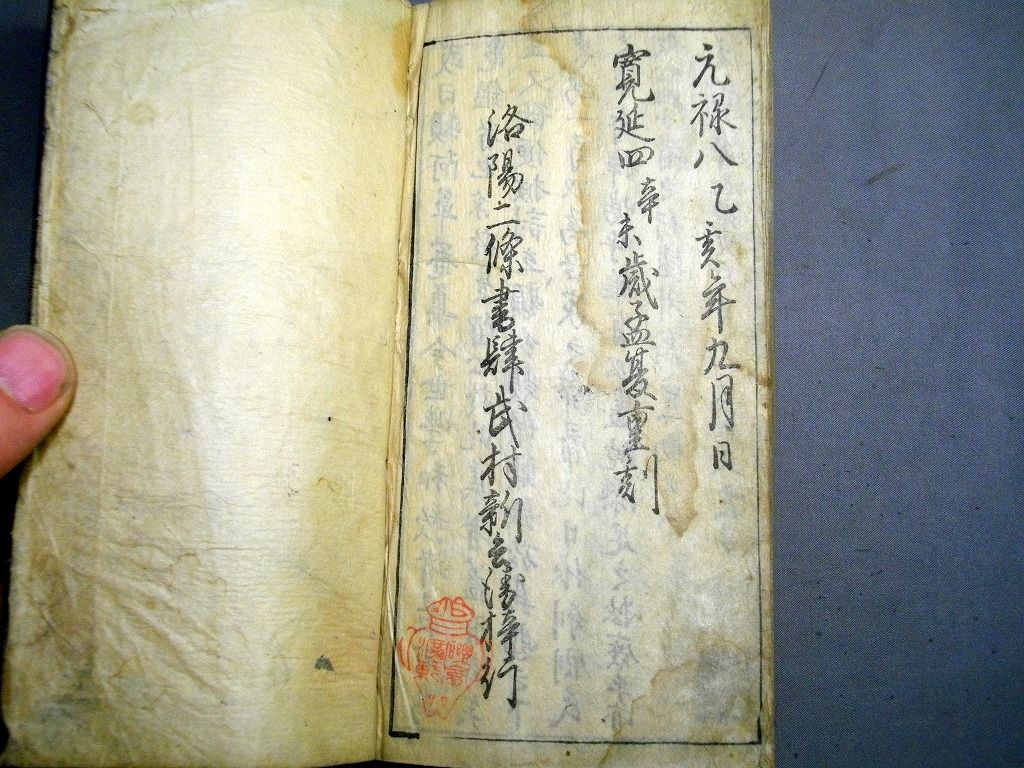 元禄八乙亥年九月日
寛延四辛未歳孟夏重刻
洛陽二條書肆武村新兵衛梓行